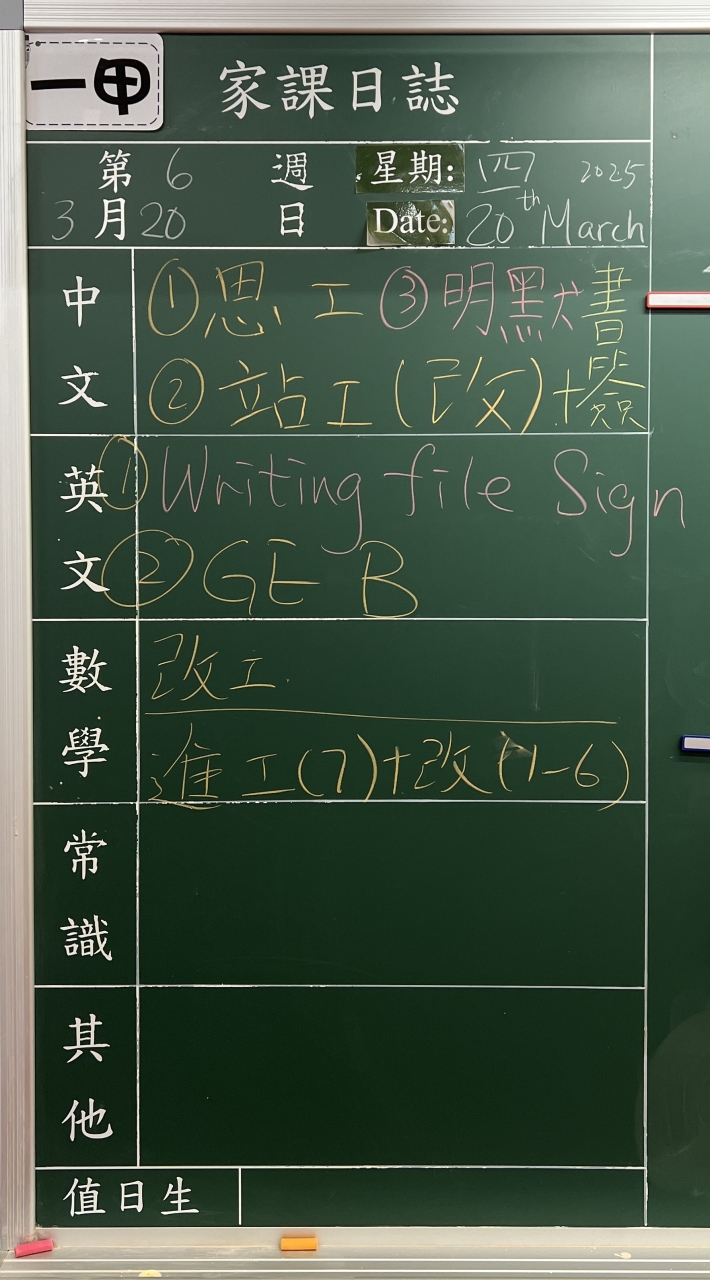 一甲 家課日誌
第 6 週 星期: 四 2025
3 月 20 日 Date: 20th March
中文
①思工 ③明默書
②站工(改)+撿
英文
①Writing file Sign
②GE B
數學
改工
進工(7)+改(1-6)
常識
其他
值日生